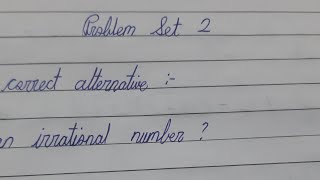 Problem Set 2
correct alternative :-
an irrational number ?